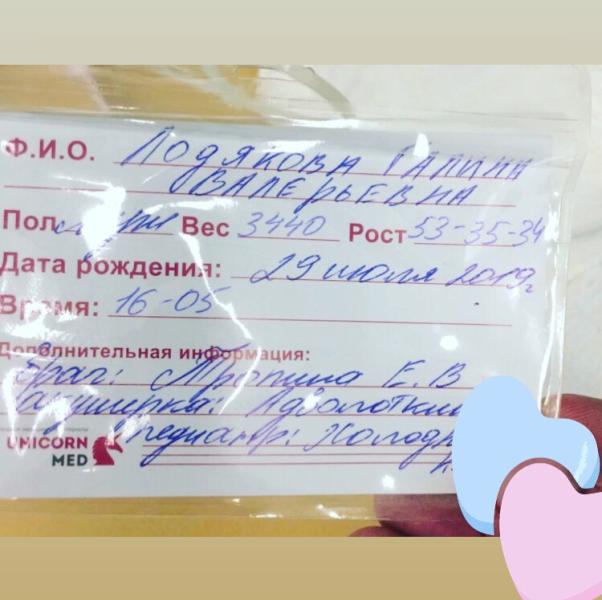 Ф.И.О. Лодякова Галина
Валерьевна
Пол Вес 3440 Рост 53-35-34
Дата рождения: 29 июля 2019г
Время: 16-05
Дополнительная информация:
Врач: Тропина Е.В
Акушерка:
педиатр:
UNICORN
MED